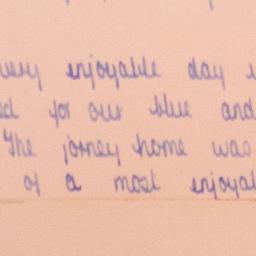 very enjoyable day
for our blue and
The jorney home was
of a most enjoyal